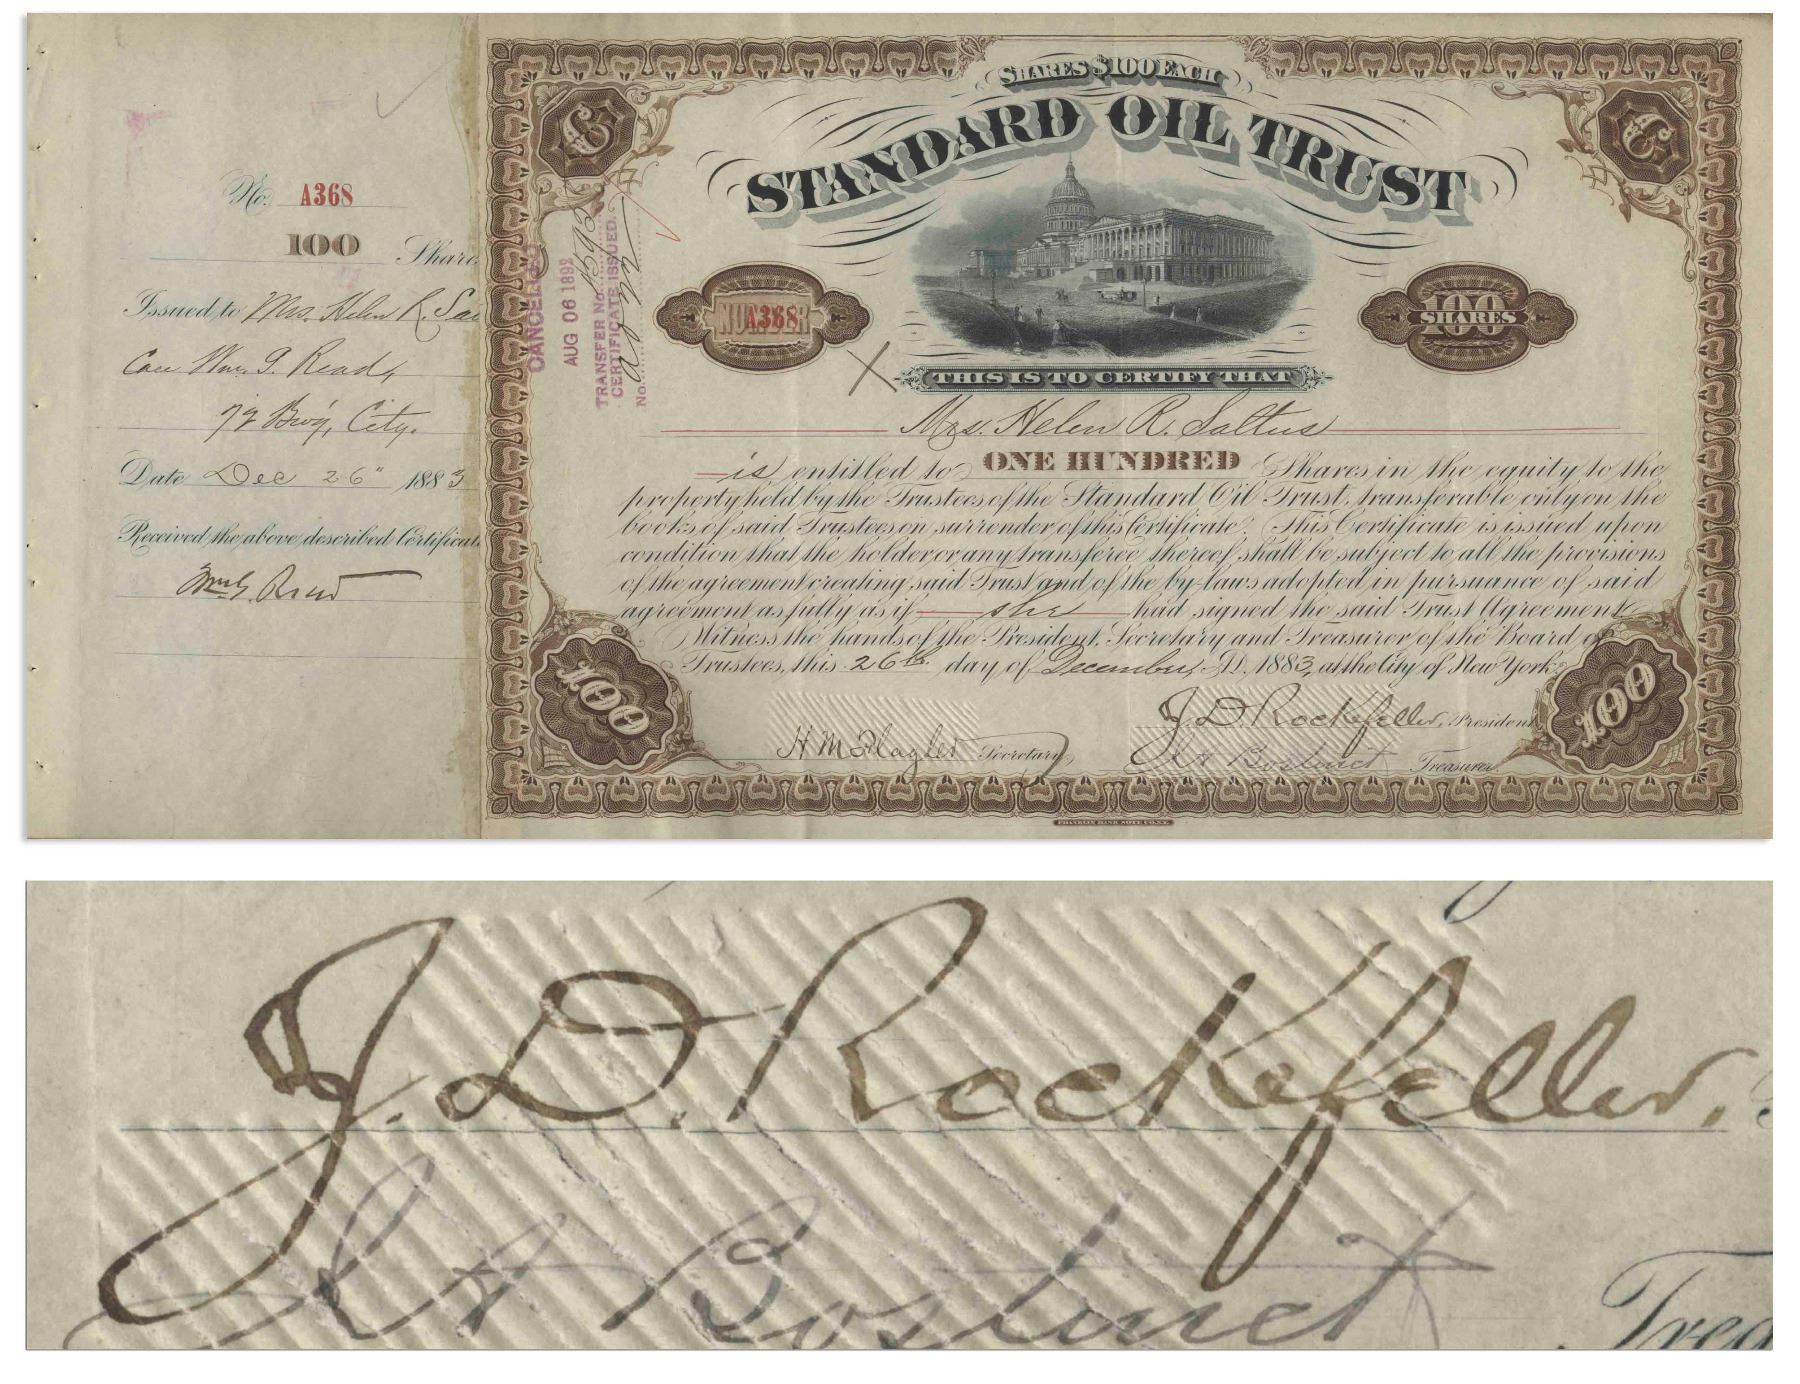 No. A368
100 Share
Issued to Mrs. Helen R. Sal
Care Wm. G. Read,
72 Bwy, City.
Date Dec 26" 1883
Received the above described Certificat
Wm G. Read
CANCELLED
AUG 06 1892
TRANSFER No.
CERTIFICATE ISSUED.
No.
SHARES $100 EACH
STANDARD OIL TRUST
C
C
NUMBER A368
100 SHARES
THIS IS TO CERTIFY THAT
Mrs. Helen R. Saltus
is entitled to ONE HUNDRED Shares in the equity to the
property held by the Trustees of the Standard Oil Trust, transferable only on the
books of said Trustees on surrender of this Certificate. This Certificate is issued upon
condition that the holder or any transferee thereof shall be subject to all the provisions
of the agreement creating said Trust and of the by-laws adopted in pursuance of said
agreement as fully as if she had signed the said Trust Agreement
Witness the hands of the President, Secretary and Treasurer of the Board of
Trustees, this 26th day of December, A.D. 1883, at the City of New York.
100
100
J. D. Rockefeller, President
H M Flagler Secretary,
Bostwick Treasurer
FRANKLIN BANK NOTE CO. N.Y.
J. D. Rockefeller,
Bostwick Trea